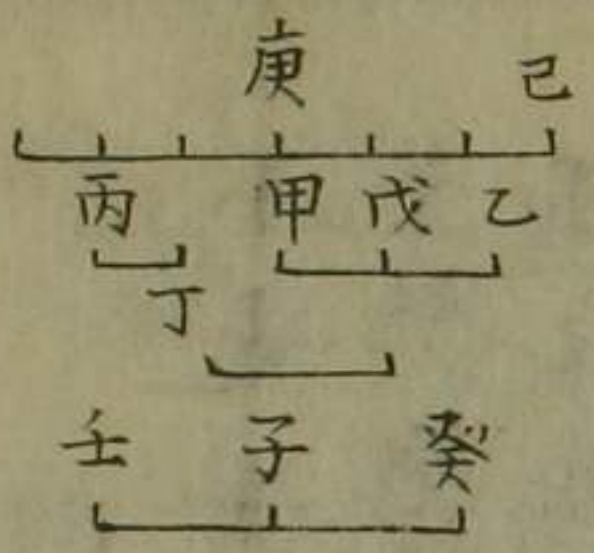 庚 己
丙 甲 戊 乙
丁
壬 子 癸